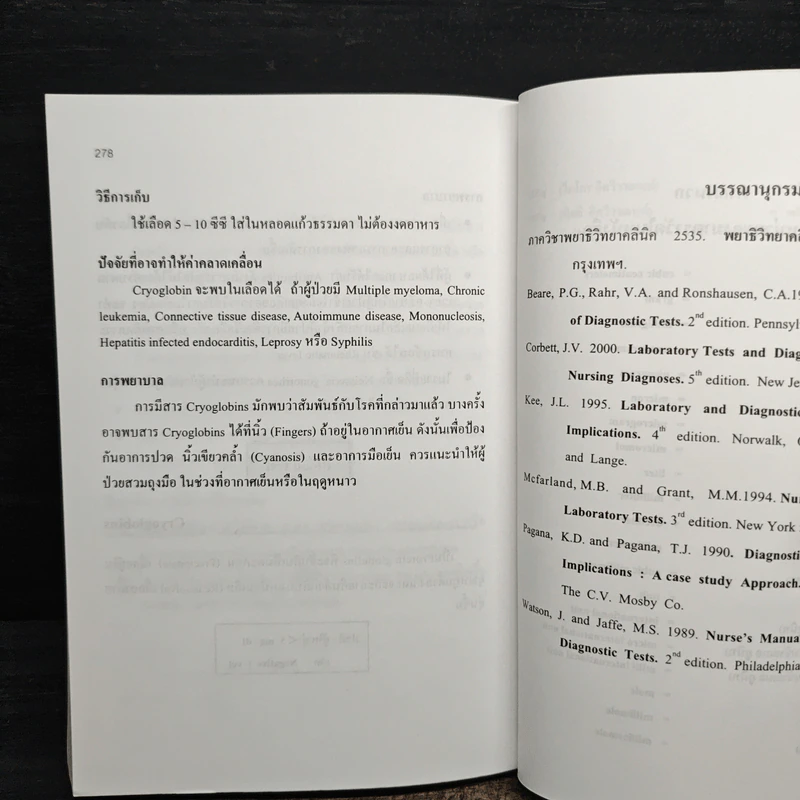 278
วิธีการเก็บ
ใช้เลือด 5 – 10 ซีซี ใส่ในหลอดแก้วธรรมดา ไม่ต้องงดอาหาร
ปัจจัยที่อาจทำให้ค่าคลาดเคลื่อน
Cryoglobin จะพบในเลือดได้ ถ้าผู้ป่วยมี Multiple myeloma, Chronic
leukemia, Connective tissue disease, Autoimmune disease, Mononucleosis,
Hepatitis infected endocarditis, Leprosy หรือ Syphilis
การพยาบาล
การมีสาร Cryoglobins มักพบว่าสัมพันธ์กับโรคที่กล่าวมาแล้ว บางครั้ง
อาจพบสาร Cryoglobins ได้ที่นิ้ว (Fingers) ถ้าอยู่ในอากาศเย็น ดังนั้นเพื่อป้อง
กันอาการปวด นิ้วเขียวคล้ำ (Cyanosis) และอาการมือเย็น ควรแนะนำให้ผู้
ป่วยสวมถุงมือ ในช่วงที่อากาศเย็นหรือในฤดูหนาว
บรรณานุกรม
ภาควิชาพยาธิวิทยาคลินิค 2535. พยาธิวิทยาคลิ
กรุงเทพฯ.
Beare, P.G., Rahr, V.A. and Ronshausen, C.A.19
of Diagnostic Tests. 2nd edition. Pennsyl
Corbett, J.V. 2000. Laboratory Tests and Diag
Nursing Diagnoses. 5th edition. New Je
Kee, J.L. 1995. Laboratory and Diagnostic
Implications. 4th edition. Norwalk,
and Lange.
Mcfarland, M.B. and Grant, M.M.1994. Nu
Laboratory Tests. 3rd edition. New York
Pagana, K.D. and Pagana, T.J. 1990. Diagnostic
Implications : A case study Approach.
The C.V. Mosby Co.
Watson, J. and Jaffe, M.S. 1989. Nurse's Manua
Diagnostic Tests. 2nd edition. Philadelphia